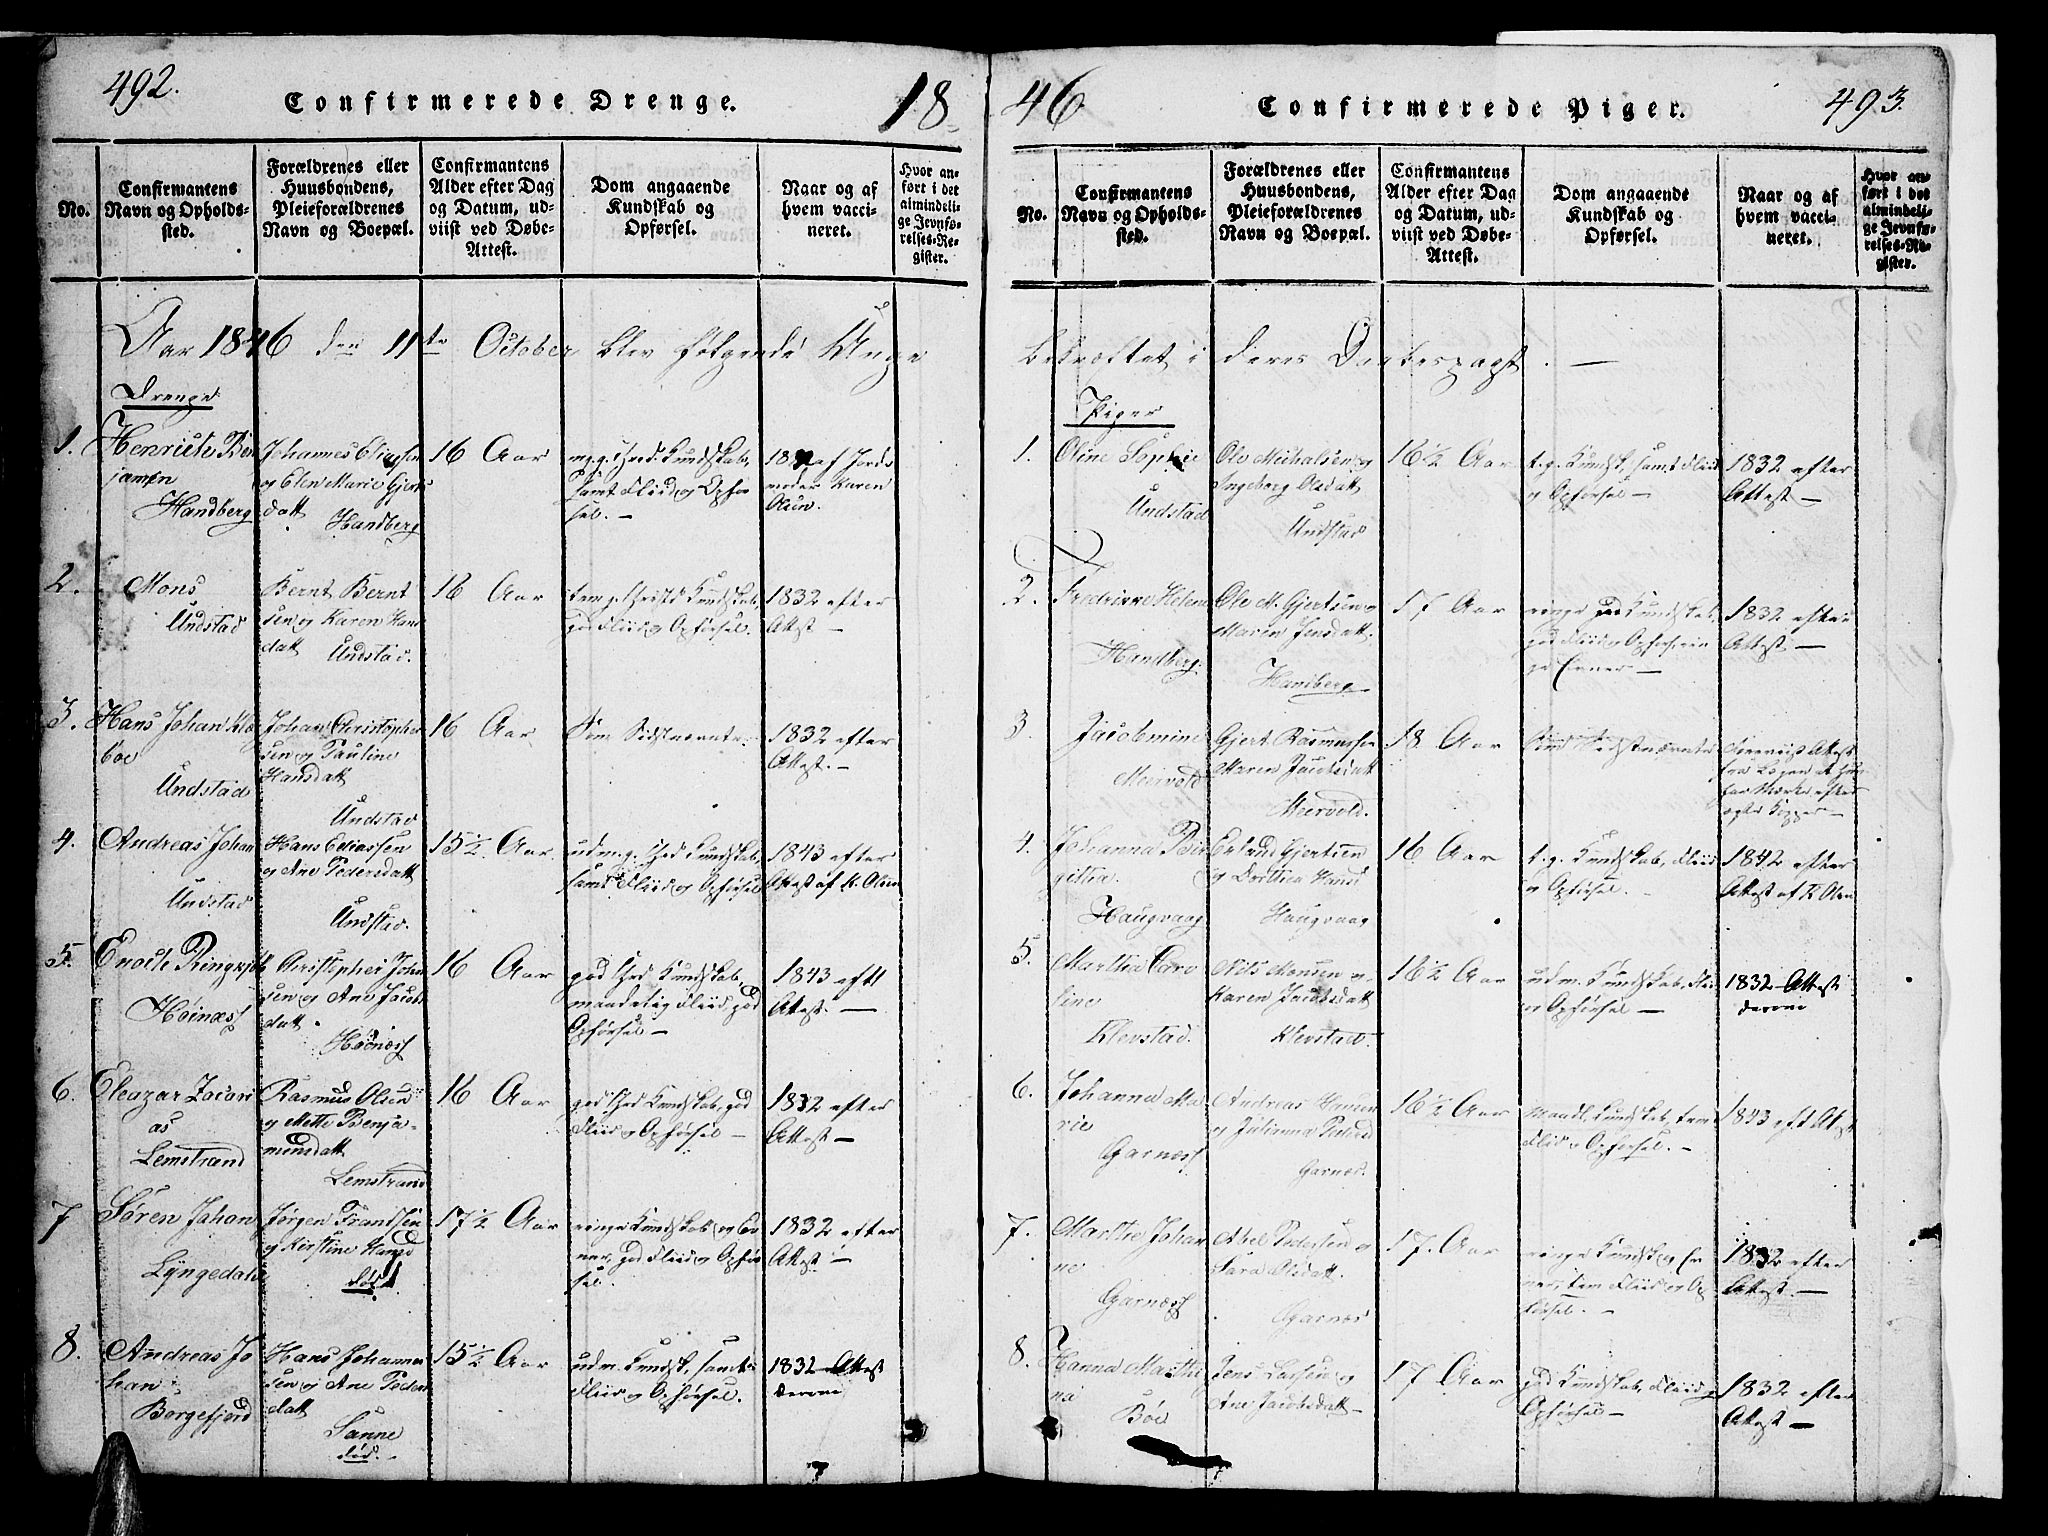 492.
Confirmerede Drenge.
18
No.
Confirmantens
Navn og Opholds-
sted.
Forældrenes eller
Huusbondens,
Pleieforældrenes
Navn og Boepæl.
Confirmantens
Alder efter Dag
og Datum, ud-
viist ved Døbe-
Attest.
Dom angaaende
Kundskab og
Opførsel.
Naar og af
hvem vacci-
neret.
Hvor an-
ført i det
almindeli-
ge Jevnfø-
relses-Re-
gister.
Aar 1846 den 11te October blev følgende Unge
Drenge
1.
Henrich Ben
jamen
Handberg
Johannes Eliassen
og Elen Marie Gjerts
datt
Handberg
16 Aar
m.g. Chrd. Kundskab,
samt Fliid og Opfør
sel. —
af Jords
moder Karen
Olsen.
2.
Mons
Undstad
Bernt Bernt
sen og Karen Hans
datt
Undstad.
18 Aar
tem. g. Christd Kundskab,
god Fliid og Opførsel.
1832 efter
Attest —
3.
Hans Johan Klæ
boe
Undstad
Johan Christopher
sen og Pauline
Hansdatt
Undstad
16 Aar
Som Sidstnævnte.
1832 efter
Attest. —
4.
Andreas Johan
Undstad
Hans Eliassen
og Ane Pedersdatt
Undstad.
15½ Aar
udm. g. Chrd Kundskab,
samt Fliid og Opførsel
1843 efter
Attest af K. Olsen
5.
Enoch Ringkjøb
Høinæss
Christopher Johan
sen og Ane Jacobs
datt.
Høinæss
16 Aar
god Chrd Kundskab,
maadelig Fliid, god
Opførsel —
1843 eftr
Attest. —
6.
Eleazar Zacari
as
Lemstrand
Rasmus Olsen
og Mette Benja-
minsdatt
Lemstrand
16 Aar
god Chrd Kundskab, god
Fliid og Opførsel —
1832 efter
Attest —
7
Søren Johan
Lyngedahl
Jørgen Frandsen
og Kirstine Hansd
død
17½ Aar
ringe Kundskab og Ev
ner, god Fliid og Opfør
sel.
1832 efter
Attest. —
8.
Andreas Jo
han
Borgefjord
Hans Johannes
sen og Ane Peders
datt
Sanne
død.
15½ Aar
udm. Kundsk, samt
Fliid og Opførsel.
1832 Attest
derom
46
Confirmerede Piger.
493.
No.
Confirmantens
Navn og Opholds-
sted.
Forældrenes eller
Huusbondens,
Pleieforældrenes
Navn og Boepæl.
Confirmantens
Alder efter Dag
og Datum, ud-
viist ved Døbe-
Attest.
Dom angaaende
Kundskab og
Opførsel.
Naar og af
hvem vacci-
neret.
Hvor an-
ført i det
almindeli-
ge Jevnfø-
relses-Re-
gister.
bekræftet i deres Daabespagt. —
Piger
1.
Oline Sophie
Undstad
Ole Michalsen og
Ingeborg Olsdatt
Undstad
16½ Aar
t. g. Kundsk, samt Fliid
og Opførsel —
1832 efter
Attest —
2.
Fredrikke Helena
Handberg.
Ole M. Gjertsen og
Maren Jensdatt.
Handberg
17 Aar
ringe Kundskab,
god Fliid og Opførsel, rin
ge Evner —
1832 efter
Attest. —
3
Jacobmine
Meervold
Gjert Rasmussen
Maren Jacobsdatt
Meervold.
18 Aar
Som Sidstnævnte
Attest
fra
efter
ægte Kopper —
4.
Johanna Bir
githa.
Haugvaag
Erland Gjertsen
og Dorthea Hansd
Haugvaag
16 Aar
t. g. Kundskab, Fliid
og Opførsel. —
1842 efter
Attest af K Olsen
5.
Martha Caro
line
Klevstad.
Nils Monsen og
Karen Jacobsdatt
Klevstad.
16½ Aar
udm. Kundskab, Flid
og Opførsel —
1832 Attest
derom
6.
Johanna Ma
rie
Garnæss
Andreas Hansen
og Julianna Pedersd
Garnæs.
16½ Aar
Maadl. Kundskab, tem
Fliid og Opførsel. —
1843 eft Attest
7.
Marthe Johan
ne
Garnæss
Abel Pedersen og
Sara Olsdatt.
Garnæs
17. Aar
ringe Kundsk og Ev
ner, tem Fliid og Op
førsel. —
1832 efter
Attest. —
8.
Hanna Marthi
na
Bøe
Jens Larsen og
Ane Jacobsdatt —
17 Aar
god Kundskab, Fliid og
Opførsel —
1832 efter
Attest —